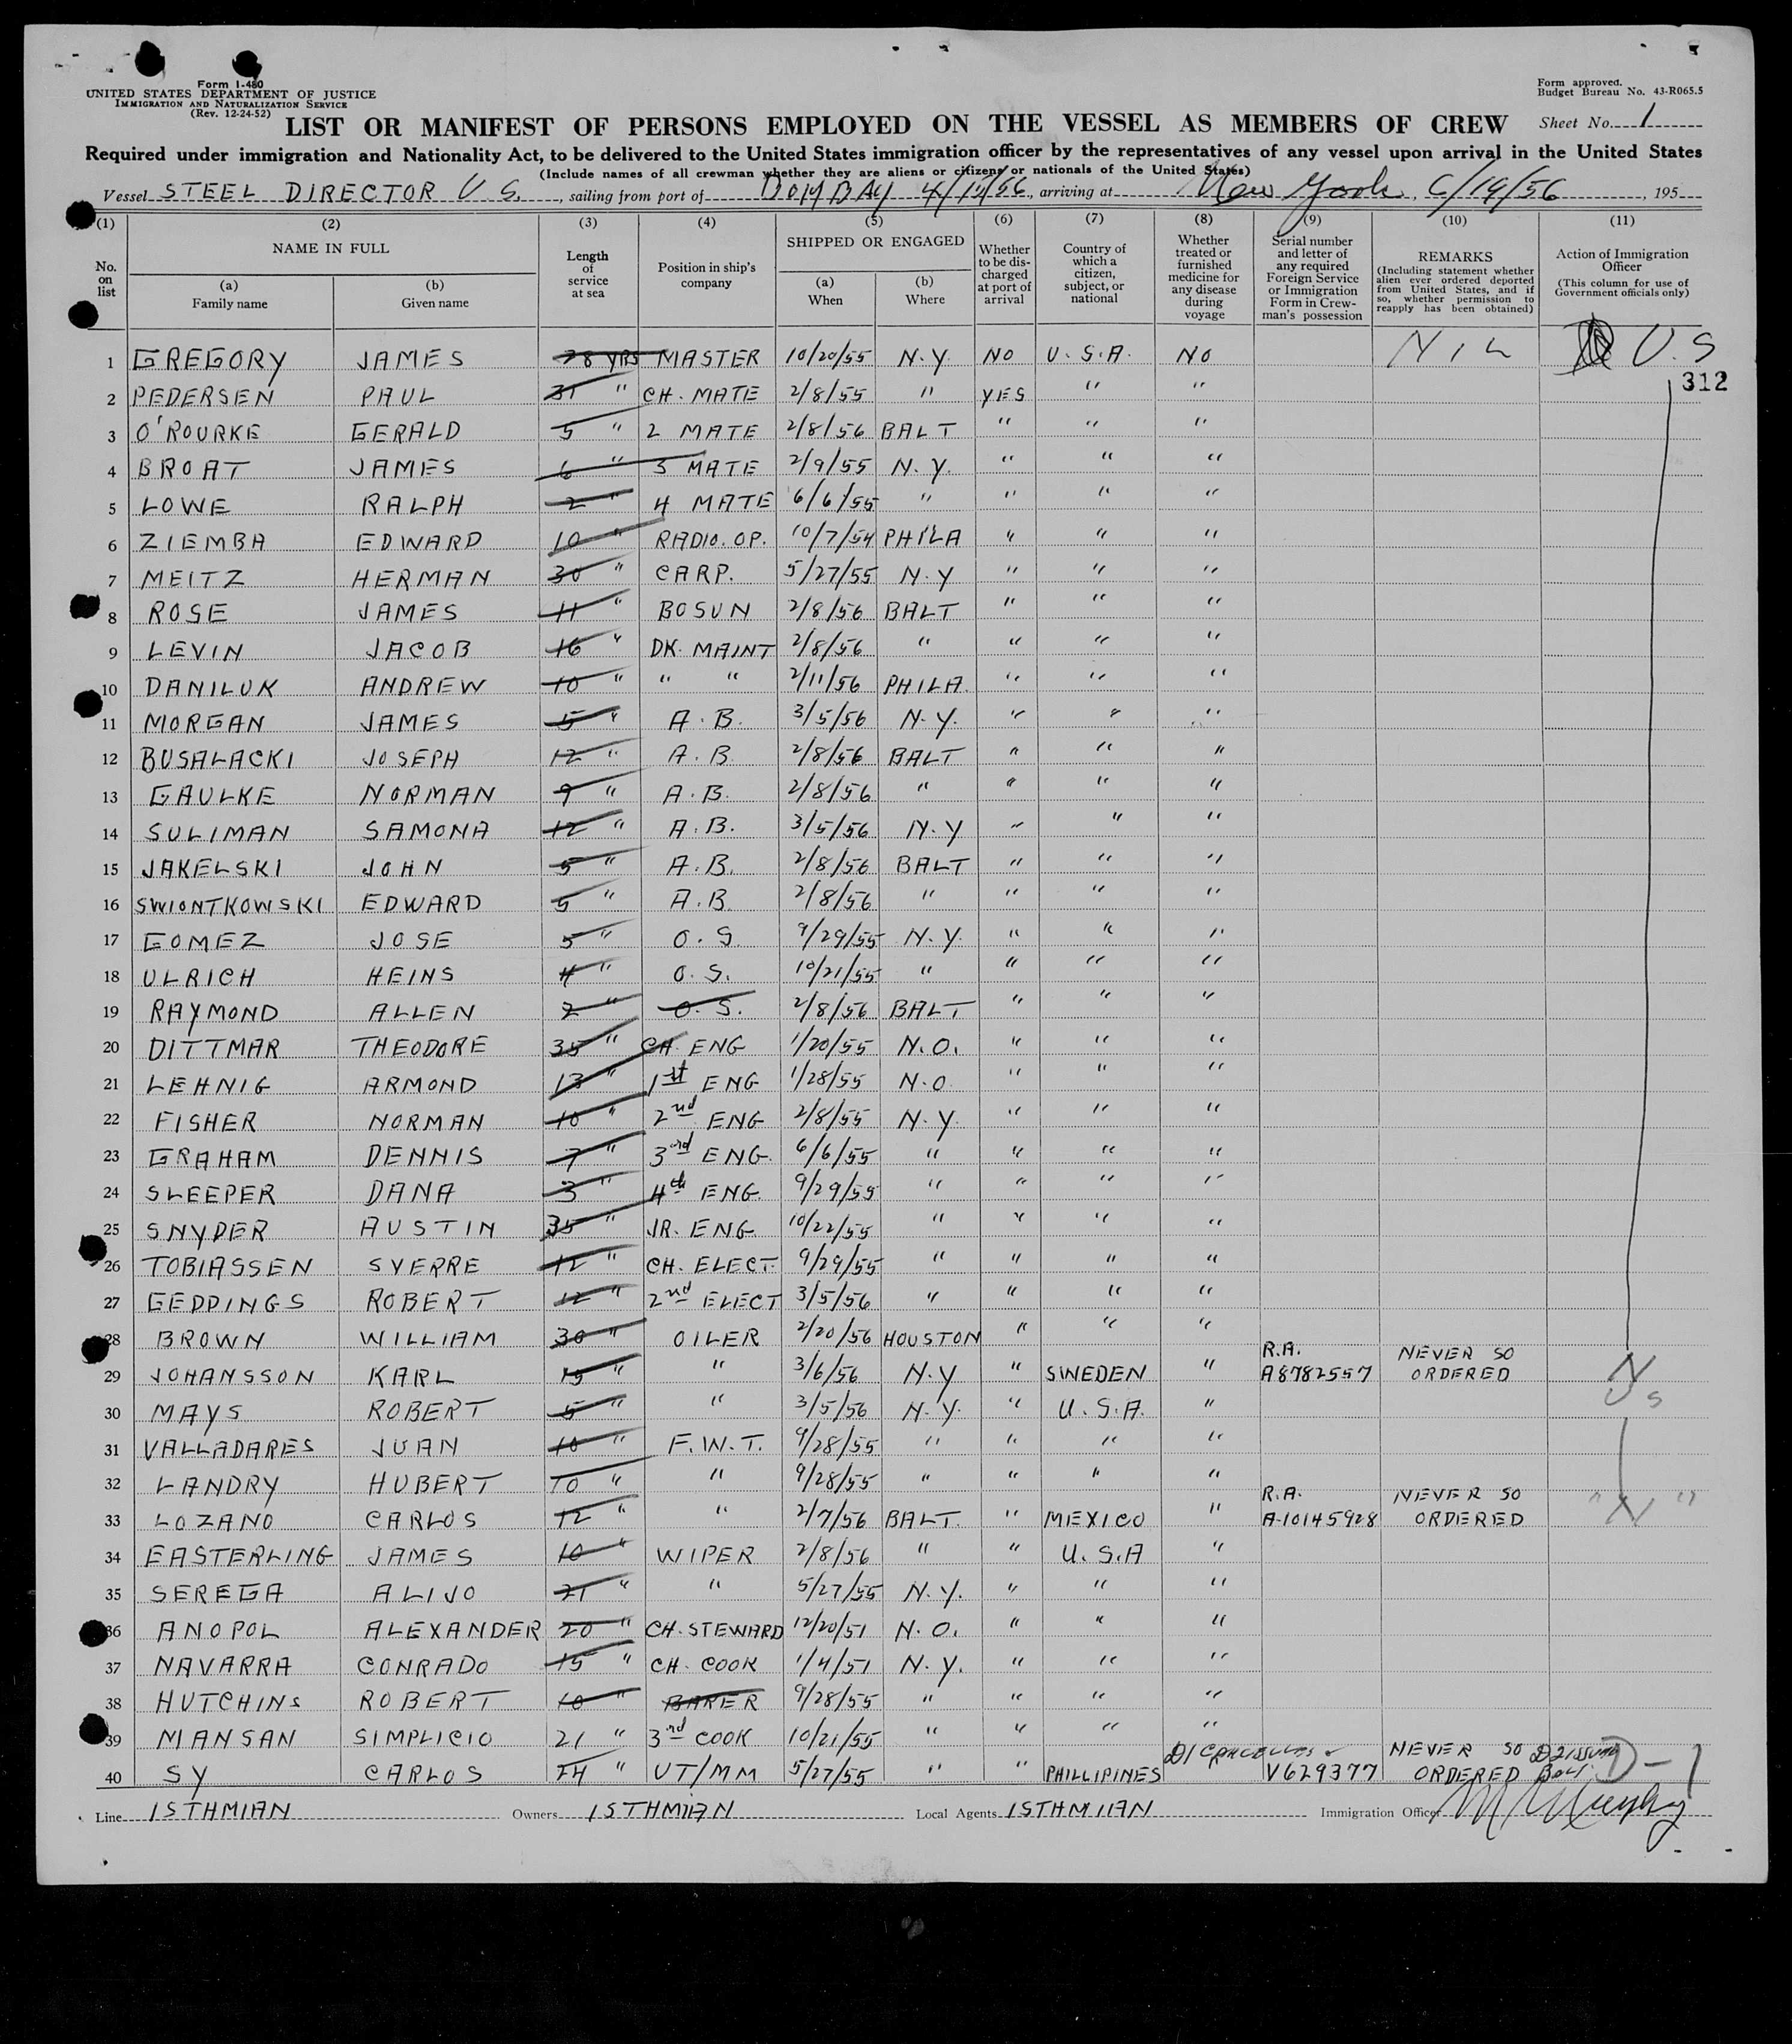 Form I-480
UNITED STATES DEPARTMENT OF JUSTICE
IMMIGRATION AND NATURALIZATION SERVICE
(Rev. 12-24-52)
Form approved.
Budget Bureau No. 43-R065.5
LIST OR MANIFEST OF PERSONS EMPLOYED ON THE VESSEL AS MEMBERS OF CREW Sheet No. 1
Required under immigration and Nationality Act, to be delivered to the United States immigration officer by the representatives of any vessel upon arrival in the United States
(Include names of all crewman whether they are aliens or citizens or nationals of the United States)
Vessel STEEL DIRECTOR U.S., sailing from port of BOMBAY 4/15/56, arriving at New York, 6/19/56, 195
(1) (2) (3) (4) (5) (6) (7) (8) (9) (10) (11)
No. on list
NAME IN FULL
(a) Family name
(b) Given name
Length of service at sea
Position in ship's company
SHIPPED OR ENGAGED
(a) When
(b) Where
Whether to be discharged at port of arrival
Country of which a citizen, subject, or national
Whether treated or furnished medicine for any disease during voyage
Serial number and letter of any required Foreign Service or Immigration Form in Crewman's possession
REMARKS
(Including statement whether alien ever ordered deported from United States, and if so, whether permission to reapply has been obtained)
Action of Immigration Officer
(This column for use of Government officials only)
1 GREGORY JAMES 28 YRS MASTER 10/20/55 N.Y. NO U.S.A. NO NIL U.S
312
2 PEDERSEN PAUL 31 " CH. MATE 2/8/55 " YES " "
3 O'ROURKE GERALD 5 " 2 MATE 2/8/56 BALT " " "
4 BROAT JAMES 6 " 3 MATE 2/9/55 N.Y. " " "
5 LOWE RALPH 2 " 4 MATE 6/6/55 " " " "
6 ZIEMBA EDWARD 10 " RADIO. OP. 10/7/54 PHILA " " "
7 MEITZ HERMAN 30 " CARP. 5/27/55 N.Y " " "
8 ROSE JAMES 11 " BOSUN 2/8/56 BALT " " "
9 LEVIN JACOB 16 " DK. MAINT 2/8/56 " " " "
10 DANILUK ANDREW 10 " " " 2/11/56 PHILA. " " "
11 MORGAN JAMES 5 " A.B. 3/5/56 N.Y. " " "
12 BUSALACKI JOSEPH 12 " A.B. 2/8/56 BALT " " "
13 GAULKE NORMAN 9 " A.B. 2/8/56 " " " "
14 SULIMAN SAMONA 12 " A.B. 3/5/56 N.Y " " "
15 JAKELSKI JOHN 5 " A.B. 2/8/56 BALT " " "
16 SWIONTKOWSKI EDWARD 5 " A.B. 2/8/56 " " " "
17 GOMEZ JOSE 5 " O.S. 9/29/55 N.Y. " " "
18 ULRICH HEINS 4 " O.S. 10/21/55 " " " "
19 RAYMOND ALLEN 2 " O.S. 2/8/56 BALT " " "
20 DITTMAR THEODORE 35 " CH. ENG 1/20/55 N.O. " " "
21 LEHNIG ARMOND 13 " 1st ENG 1/28/55 N.O. " " "
22 FISHER NORMAN 10 " 2nd ENG 2/8/55 N.Y. " " "
23 GRAHAM DENNIS 7 " 3rd ENG. 6/6/55 " " " "
24 SLEEPER DANA 3 " 4th ENG. 9/29/55 " " " "
25 SNYDER AUSTIN 35 " JR. ENG. 10/22/55 " " " "
26 TOBIASSEN SVERRE 12 " CH. ELECT. 9/29/55 " " " "
27 GEDDINGS ROBERT 12 " 2nd ELECT 3/5/56 " " " "
28 BROWN WILLIAM 30 " OILER 2/20/56 HOUSTON " " "
29 JOHANSSON KARL 15 " " 3/6/56 N.Y " SWEDEN " R.A. A8782557 NEVER SO ORDERED N
30 MAYS ROBERT 5 " " 3/5/56 N.Y. " U.S.A. " US
31 VALLADARES JUAN 10 " F.W.T. 9/28/55 " " " "
32 LANDRY HUBERT 10 " " 9/28/55 " " " "
33 LOZANO CARLOS 12 " " 2/7/56 BALT. " MEXICO " R.A. A-10145928 NEVER SO ORDERED "N"
34 EASTERLING JAMES 10 " WIPER 2/8/56 " " U.S.A "
35 SEREGA ALIJO 21 " " 5/27/55 N.Y. " " "
36 ANOPOL ALEXANDER 20 " CH. STEWARD 12/20/51 N.O. " " "
37 NAVARRA CONRADO 15 " CH. COOK 1/4/51 N.Y. " " "
38 HUTCHINS ROBERT 10 " BAKER 9/28/55 " " " "
39 MANSAN SIMPLICIO 21 " 3rd COOK 10/21/55 " " " "
40 SY CARLOS 24 " UT/MM 5/27/55 " " PHILLIPINES D1 CANCELLED V629377 NEVER SO ORDERED D-1
Line ISTHMIAN Owners ISTHMIAN Local Agents ISTHMIAN Immigration Officer